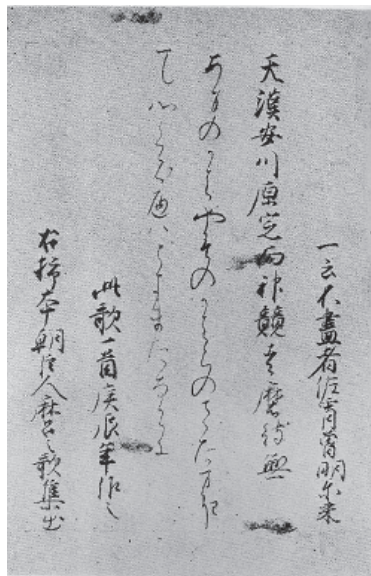 一云不盡者佐宵曽明尓来
天漢安川原定而神競者磨待無
あまのかはやすのかはらのさたまり
て心くらへはときまたなくに
此歌一首庚辰年作之
右柿本朝臣人麻呂之歌集出